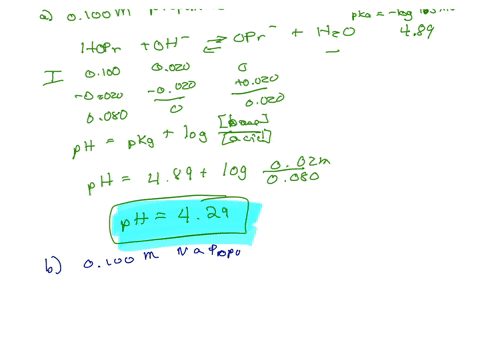 a) 0.100 m
pka = -log
HOPr + OH⁻ ⇌ OPr⁻ + H₂O 4.89
I 0.100 0.020 0
-0.020 -0.020 +0.020
0.080 0 0.020
pH = pka + log [base]/[acid]
pH = 4.89 + log 0.02m/0.080
pH = 4.29
b) 0.100 m NaPropo